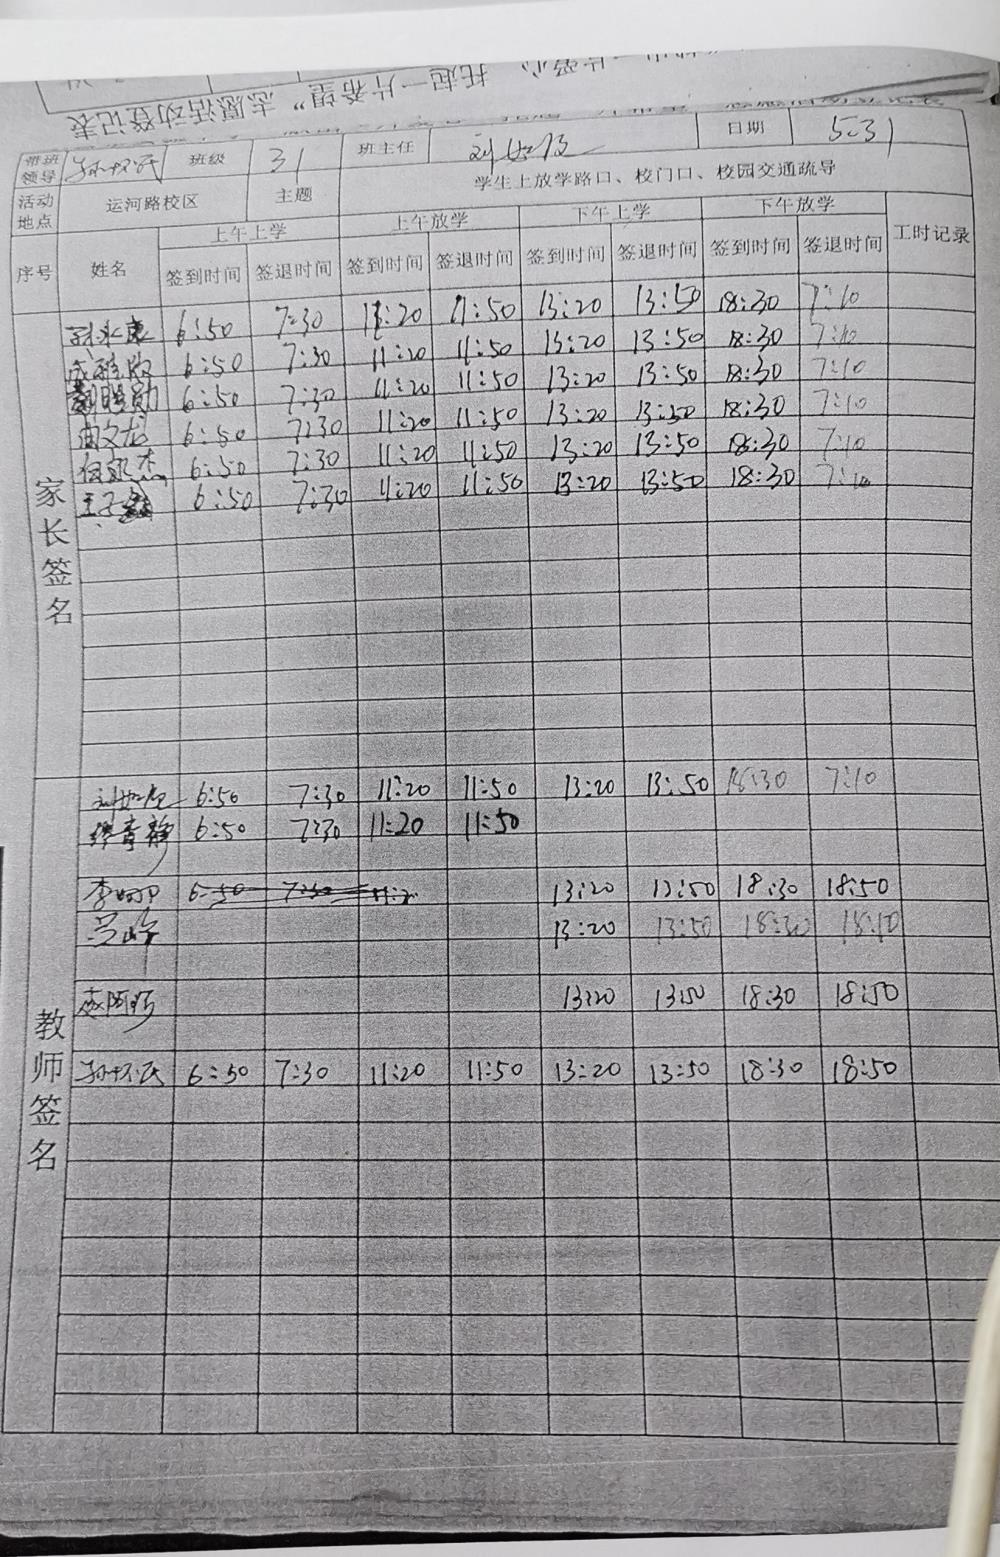 托起一片希望”志愿活动登记表
带班领导 孙怀民 班级 31 班主任 日期 5.31
活动地点 运河路校区 主题 学生上放学路口、校门口、校园交通疏导
序号 姓名 上午上学 上午放学 下午上学 下午放学 工时记录
签到时间 签退时间 签到时间 签退时间 签到时间 签退时间 签到时间 签退时间
家长签名
6:50 7:30 11:20 11:50 13:20 13:50 18:30 7:10
6:50 7:30 11:20 11:50 13:20 13:50 18:30 7:10
6:50 7:30 11:20 11:50 13:20 13:50 18:30 7:10
6:50 7:30 11:20 11:50 13:20 13:50 18:30 7:10
6:50 7:30 11:20 11:50 13:20 13:50 18:30 7:10
6:50 7:30 11:20 11:50 13:20 13:50 18:30 7:10
教师签名
6:50 7:30 11:20 11:50 13:20 13:50 18:30 7:10
6:50 7:30 11:20 11:50
6:50 7:30 11:2 13:20 13:50 18:30 18:50
13:20 13:50 18:30
13:20 13:50 18:30 18:50
孙怀民 6:50 7:30 11:20 11:50 13:20 13:50 18:30 18:50